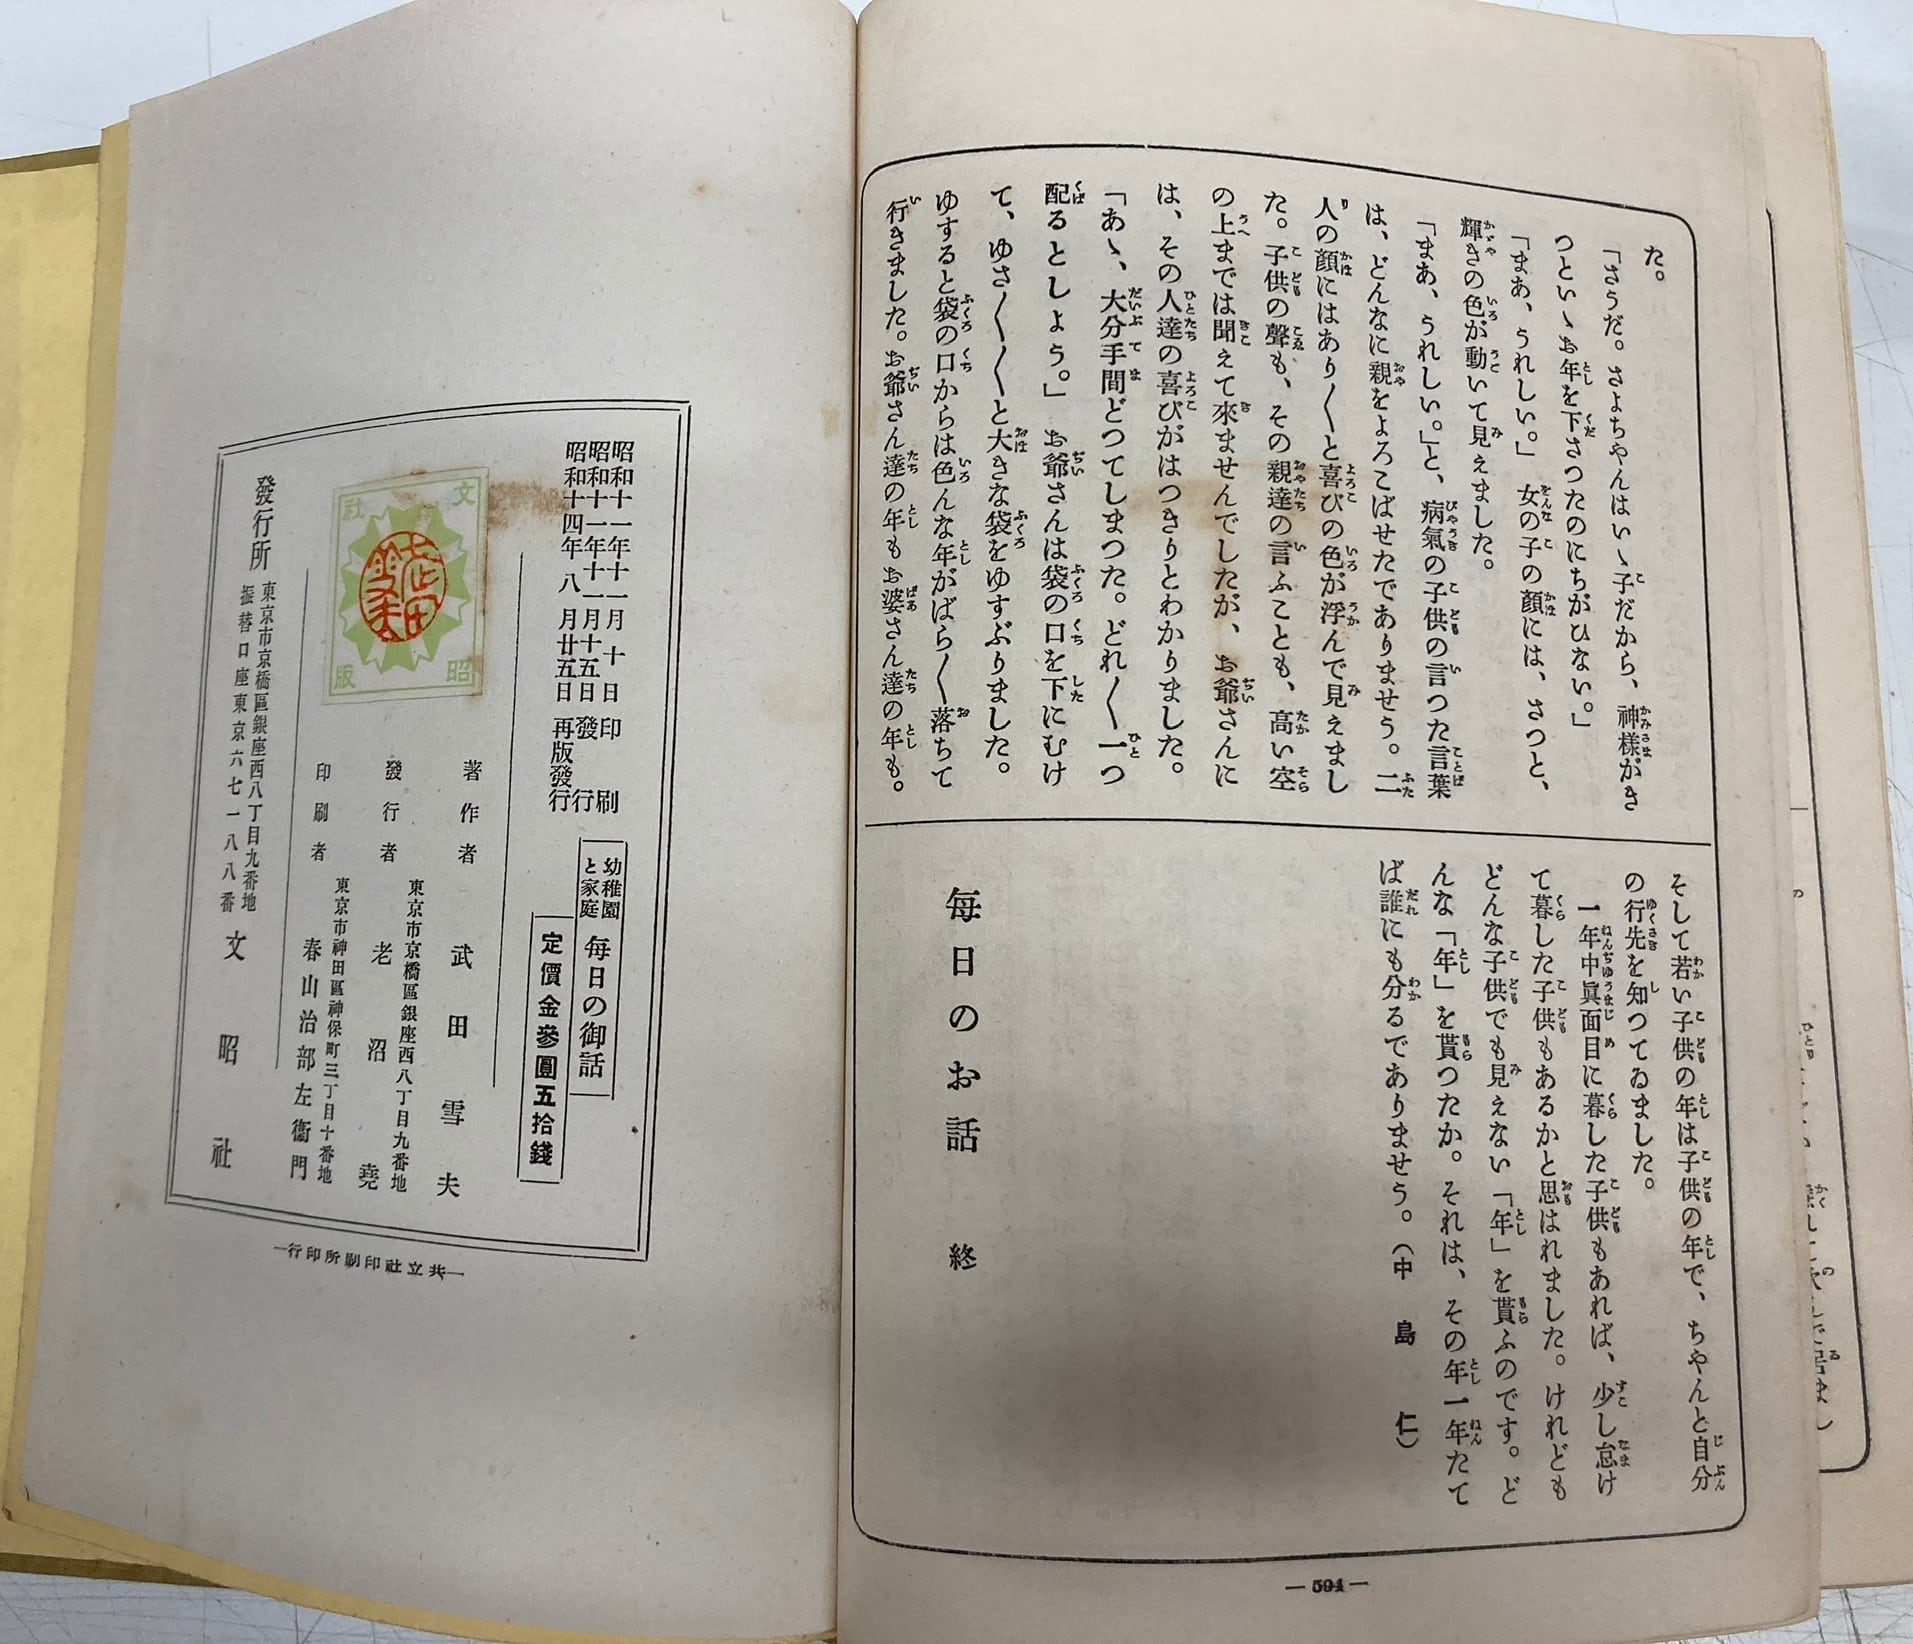 た。
「さうだ。さよちやんはいゝ子だから、神様がき
つといゝお年を下さつたのにちがひない。」
「まあ、うれしい。」 女の子の顔には、さつと、
輝きの色が動いて見えました。
「まあ、うれしい。」と、病氣の子供の言つた言葉
は、どんなに親をよろこばせたでありませう。二
人の顔にはあり〱と喜びの色が浮んで見えまし
た。子供の聲も、その親達の言ふことも、高い空
の上までは聞えて來ませんでしたが、お爺さんに
は、その人達の喜びがはつきりとわかりました。
「あゝ、大分手間どつてしまつた。どれ〱一つ
配るとしよう。」 お爺さんは袋の口を下にむけ
て、ゆさ〱〱〱と大きな袋をゆすぶりました。
ゆすると袋の口からは色んな年がばら〱落ちて
行きました。お爺さん達の年もお婆さん達の年も。
そして若い子供の年は子供の年で、ちやんと自分
の行先を知つてゐました。
一年中眞面目に暮した子供もあれば、少し怠け
て暮した子供もあるかと思はれました。けれども
どんな子供でも見えない「年」を貰ふのです。ど
んな「年」を貰つたか。それは、その年一年たて
ば誰にも分るでありませう。(中島仁)
毎日のお話 終
— 594 —
昭和十一年十一月十日印刷
昭和十一年十一月十五日發行
昭和十四年八月廿五日再版發行
幼稚園
と家庭
毎日の御話
定價金參圓五拾錢
文昭社版
著作者 武田雪夫
東京市京橋區銀座西八丁目九番地
發行者 老沼堯
東京市神田區神保町三丁目十番地
印刷者 春山治部左衞門
發行所
東京市京橋區銀座西八丁目九番地
振替口座東京六七一八八番
文昭社
—共立社印刷所印行—